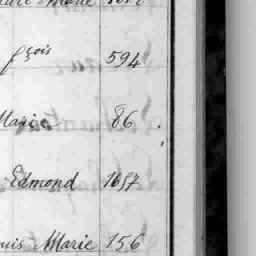 Marie
fçois 594
Marie 86
Edmond 1657
Marie 156